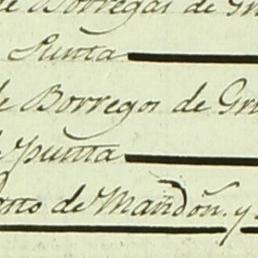 de Borregas de Gr
Punta
de Borregos de Gr
punta
de Mandoñ. y